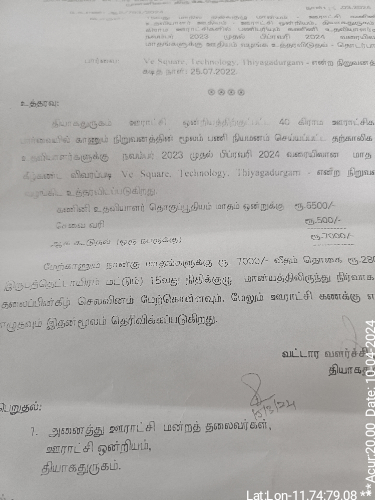 பார்வை: Ve Square, Technology, Thiyagadurgam - என்ற நிறுவனத்
கடித நாள்: 25.07.2022
உத்தரவு:
தியாகதுருகம் ஊராட்சி ஒன்றியத்திற்குட்பட்ட 40 கிராம ஊராட்சிக
பார்வையில் காணும் நிறுவனத்தின் மூலம் பணி நியமனம் செய்யப்பட்ட தற்காலிக
உதவியாளர்களுக்கு நவம்பர் 2023 முதல் பிப்ரவரி 2024 வரையிலான மாத
கீழ்கண்ட விவரப்படி Ve Square, Technology, Thiyagadurgam - என்ற நிறுவன
வழங்கிட உத்தரவிடப்படுகிறது.
கணினி உதவியாளர் தொகுப்பூதியம் மாதம் ஒன்றுக்கு ரூ.6500/-
சேவை வரி ரூ.500/-
ரூ.7000/-
மேற்காணும் நான்கு மாதங்களுக்கு ரூ. 7000/- வீதம் தொகை ரூ.280
இருபத்தெட்டாயிரம் மட்டும்) 15வது நிதிக்குழு மான்யத்திலிருந்து நிர்வாக
தலைப்பின்கீழ் செலவினம் மேற்கொள்ளவும், மேலும் ஊராட்சி கணக்கு எ
எழுதவும் இதன்மூலம் தெரிவிக்கப்படுகிறது.
வட்டார வளர்ச்சி
தியாகது
பெறுதல்:
1. அனைத்து ஊராட்சி மன்றத் தலைவர்கள்,
ஊராட்சி ஒன்றியம்,
தியாகதுருகம்.
Lat:Lon-11.74:79.08 ***Acur:20.00 Date: 10-04-2024